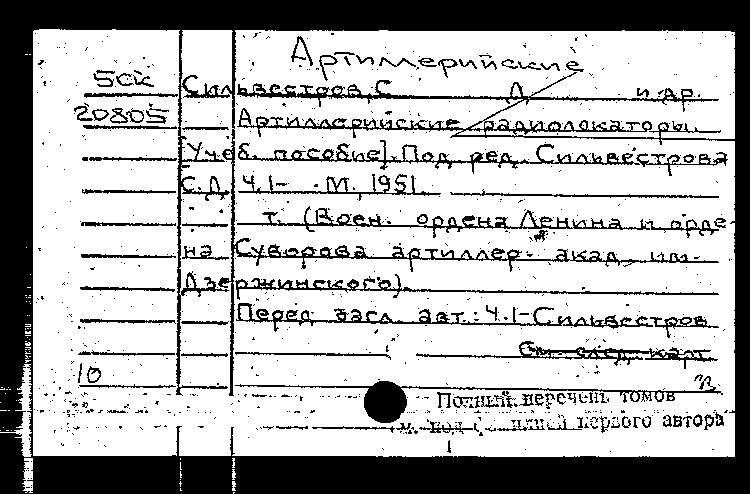 Артиллерийские
5СК Сильвестров, С Д и др.
20805 Артиллерийские радиолокаторы.
[Учеб. пособие]. Под ред. Сильвестрова
С.Д. Ч.1- . М., 1951.
т. (Воен. ордена Ленина и орде-
на Суворова артиллер. акад. им.
Дзержинского).
Перед загл. авт.: Ч.1-Сильвестров
См. след. карт.
10
Полный перечень томов
первого автора